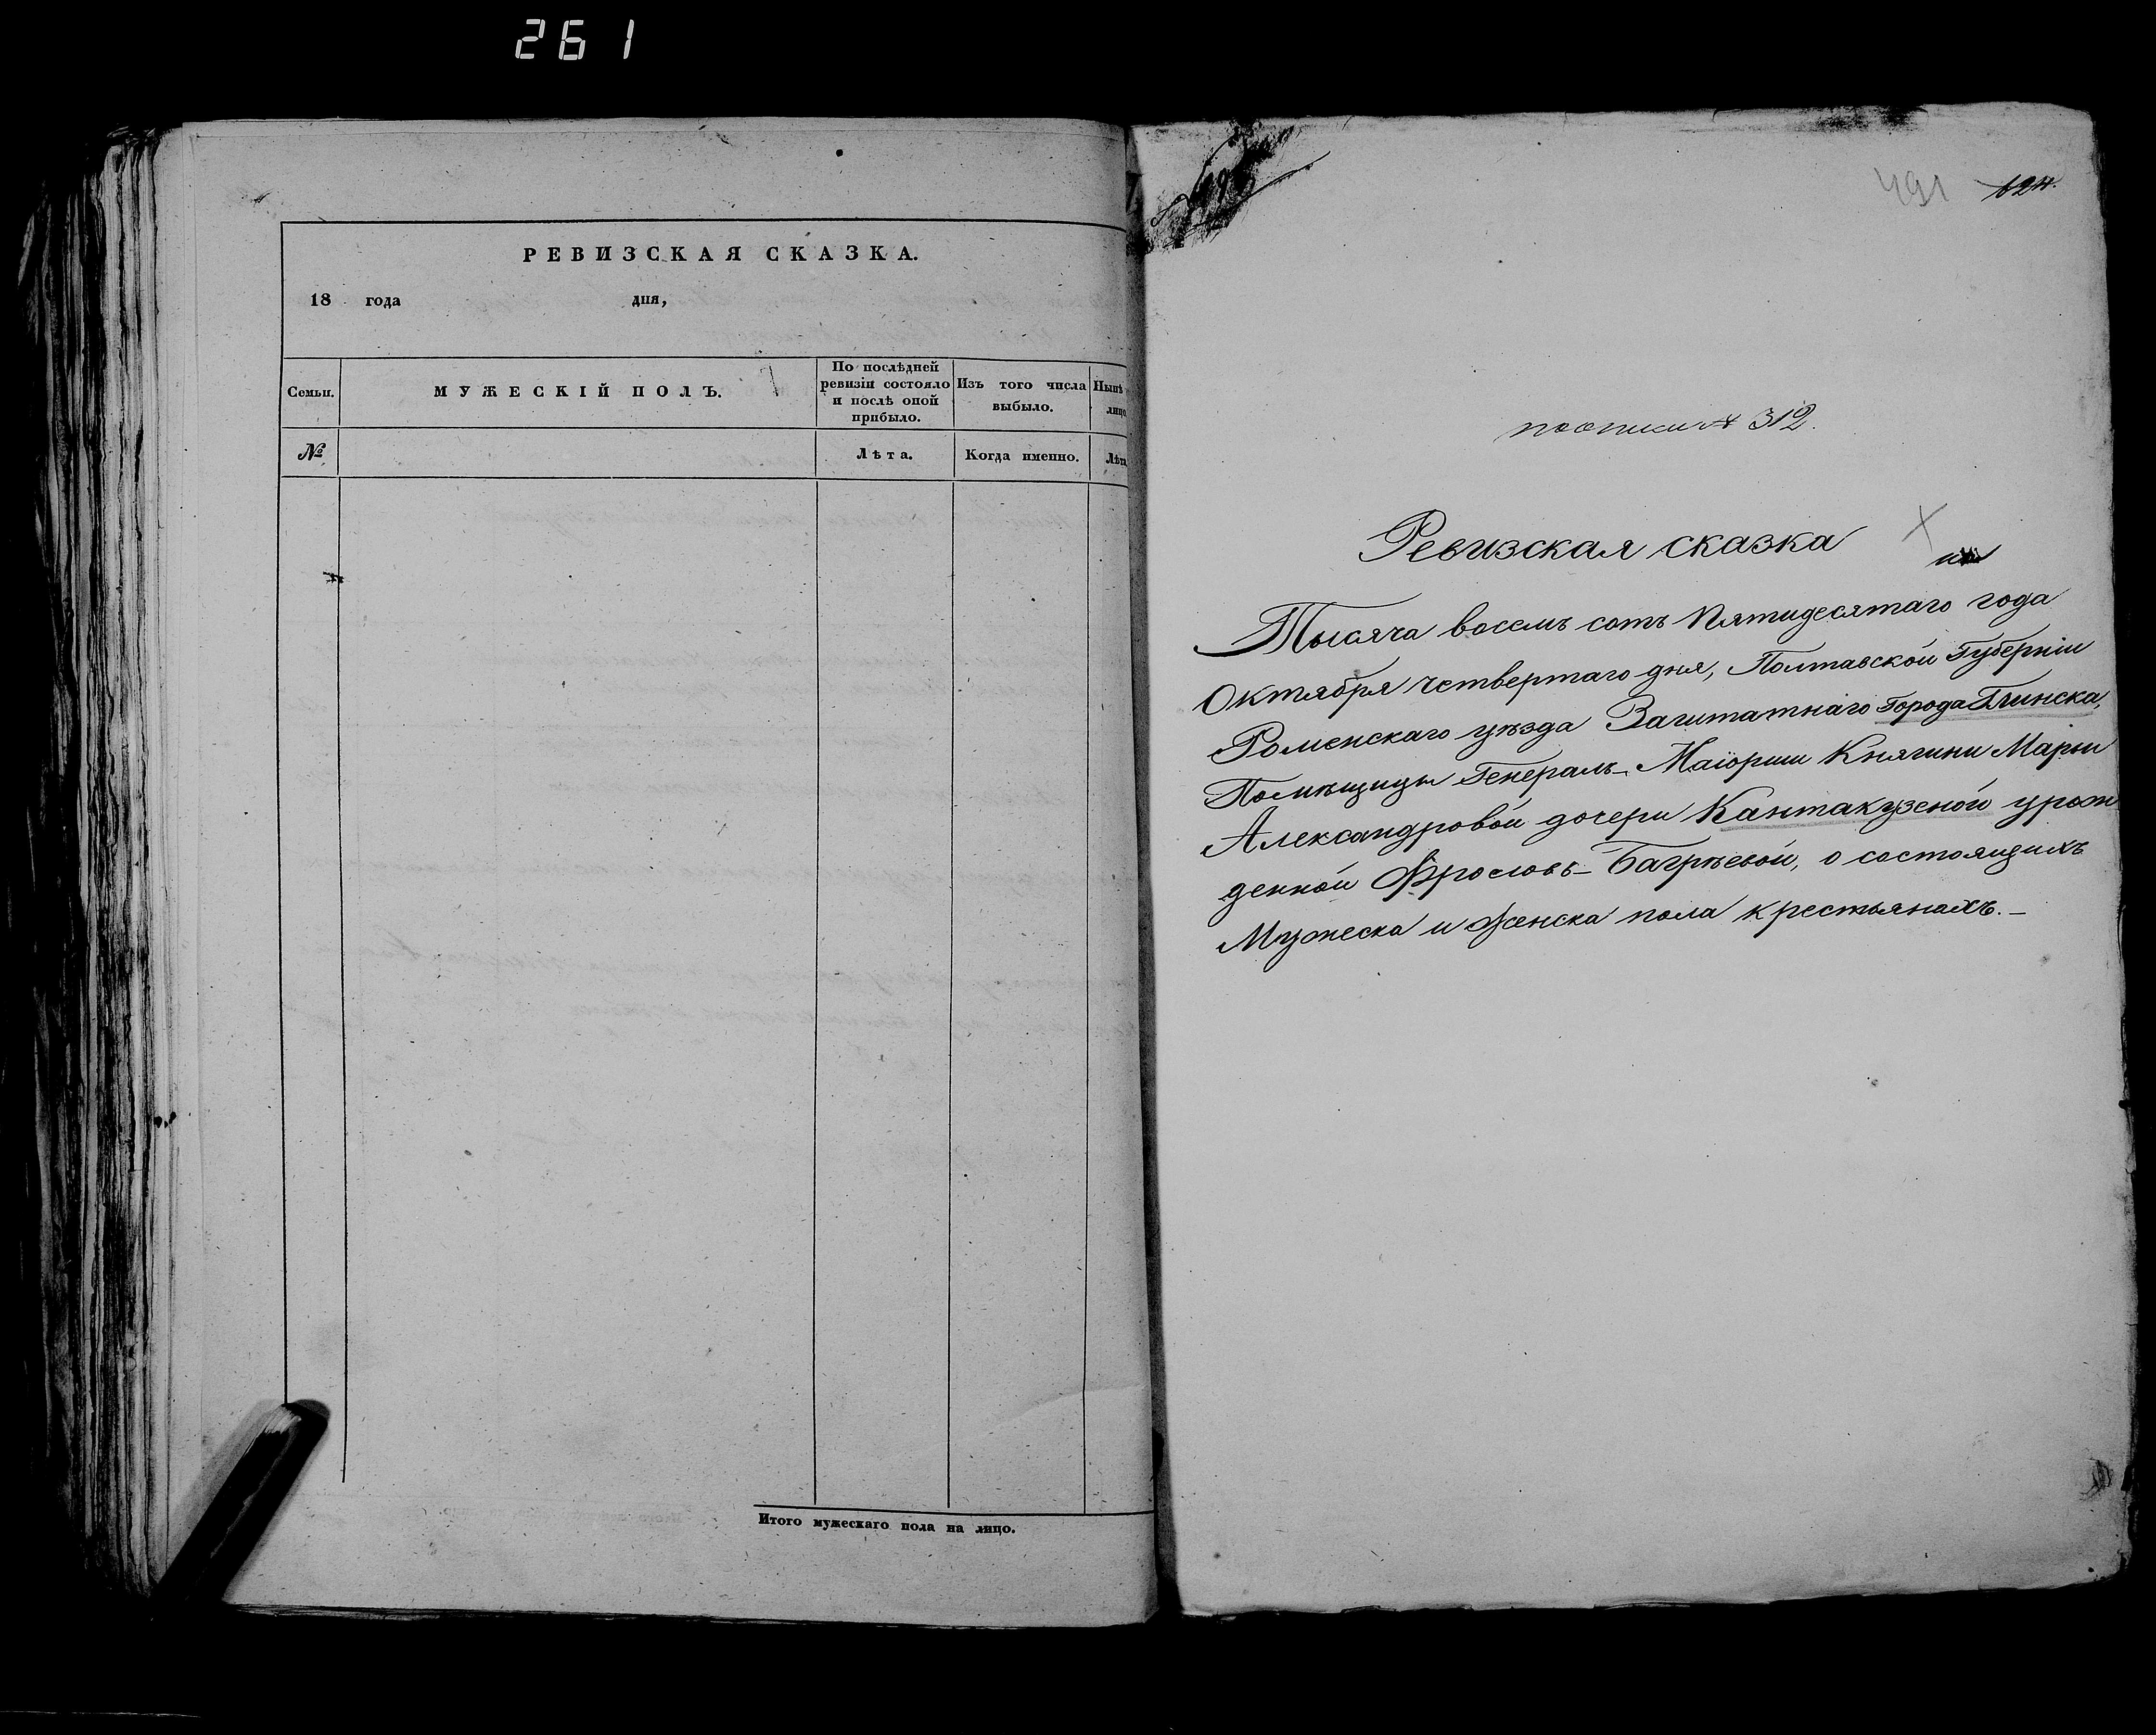 261
РЕВИЗСКАЯ СКАЗКА.
18 года дня,
Семьи.
МУЖЕСКІЙ ПОЛЪ.
По послѣдней
ревизіи состояло
и послѣ оной
прибыло.
Изъ того числа
выбыло.
Нынѣ
лицо
№
Лѣта.
Когда именно.
Лѣта
Итого мужескаго пола на лицо.
491 624.
по описи № 312.
Ревизская сказка
Тысяча восемь сотъ Пятидесятаго года
Октября четвертаго дня, Полтавской Губерніи
Роменскаго уѣзда Заштатнаго Города Глинска,
Помѣщицы Генералъ-Маіорши Княгини Марьи
Александровой дочери Кантакузеной урож
денной Фроловъ-Багрѣевой, о состоящихъ
Мужеска и женска пола крестьянахъ.-